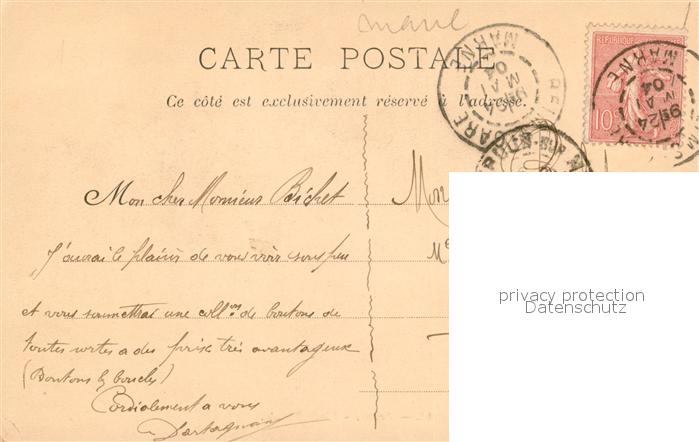 CARTE POSTALE
Ce côté est exclusivement réservé à l'adresse.
REPUBLIQUE
10
MARNE
GARE
MAI
04
MARNE
9E/24
04
Mon cher Monsieur Bichet
Mon
J'aurai le plaisir de vous voir sous peu
et vous soumettrai une collon de boutons de
toutes sortes a des prix très avantageux
(Boutons & boucles)
Cordialement a vous
privacy protection
Datenschutz